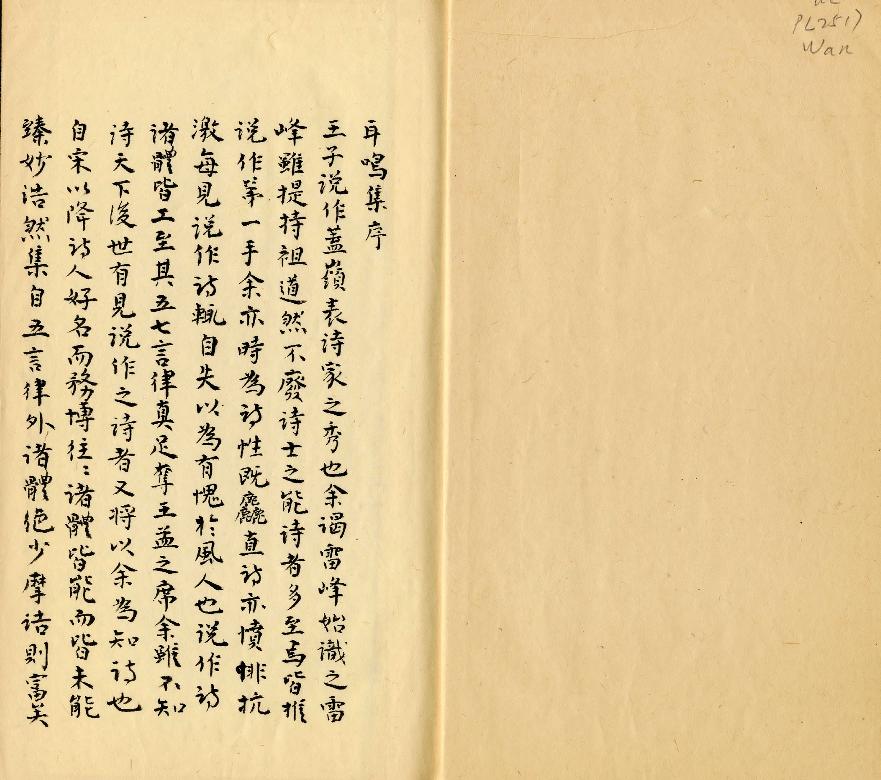 耳鳴集序
王子說作蓋嶺表詩家之秀也余謁雷峰始識之雷
峰雖提持祖道然不廢詩士之能詩者多至焉皆推
說作第一手余亦時為詩性既麤直詩亦憤悱抗
激每見說作詩輒自失以為有愧於風人也說作詩
諸體皆工至其五七言律真足奪王孟之席余雖不知
詩天下後世有見說作之詩者又將以余為知詩也
自宋以降詩人好名而務博往〻諸體皆能而皆未能
臻妙浩然集自五言律外諸體絕少摩詰則富矣
PL2517
Wan